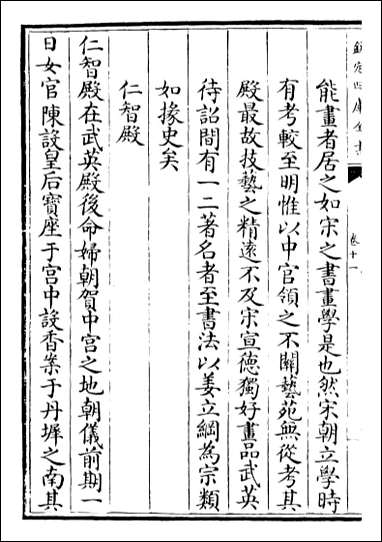 欽定四庫全書
卷十一
能畫者居之如宋之書畫學是也然宋朝立學時
有考較至明惟以中官領之不關藝苑無從考其
殿最故技藝之精遠不及宋宣德獨好畫品武英
待詔間有一二著名者至書法以姜立綱為宗類
如掾史矣
仁智殿
仁智殿在武英殿後命婦朝賀中宮之地朝儀前期一
日女官陳設皇后寶座于宮中設香案于丹墀之南其